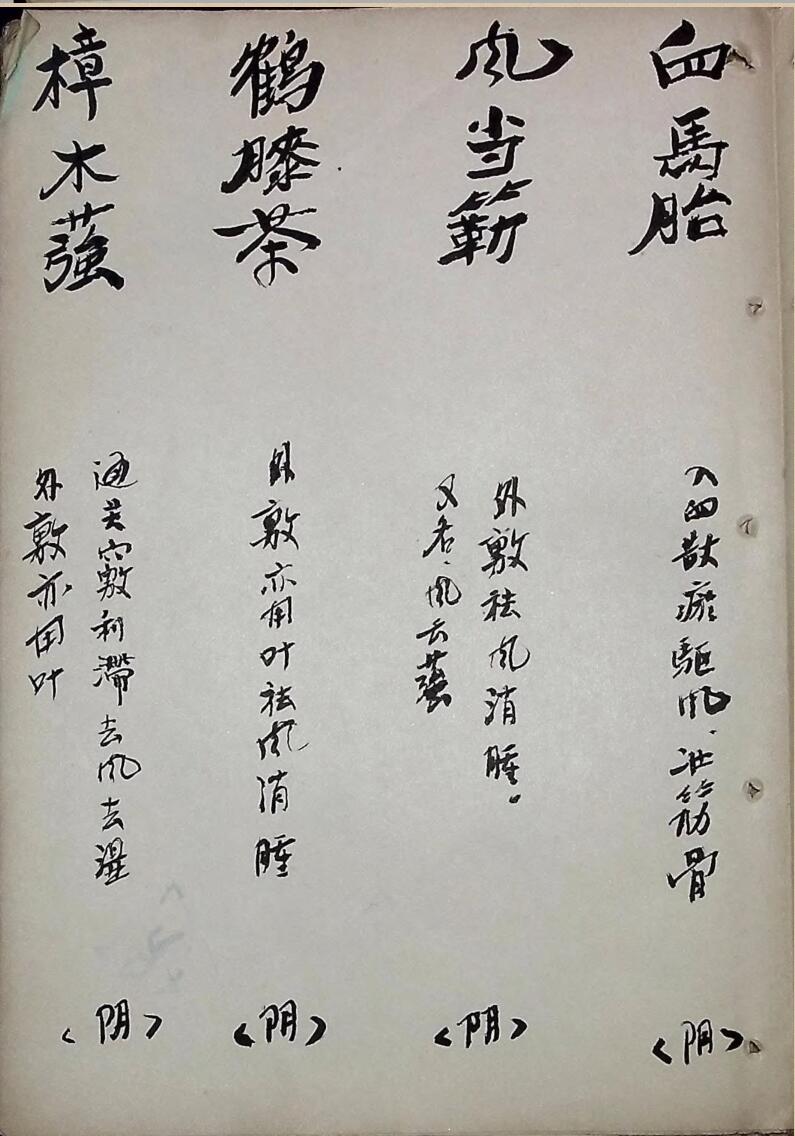 血馬胎
入血散瘀驅风、壯筋骨
〈阴〉
风当簕
外敷祛风消腫。
又名、風云
〈阴〉
鶴膝茶
外敷亦用叶祛风消腫
〈阴〉
樟木
通关穴敷利滯去风去湿
外敷亦用叶
〈阴〉